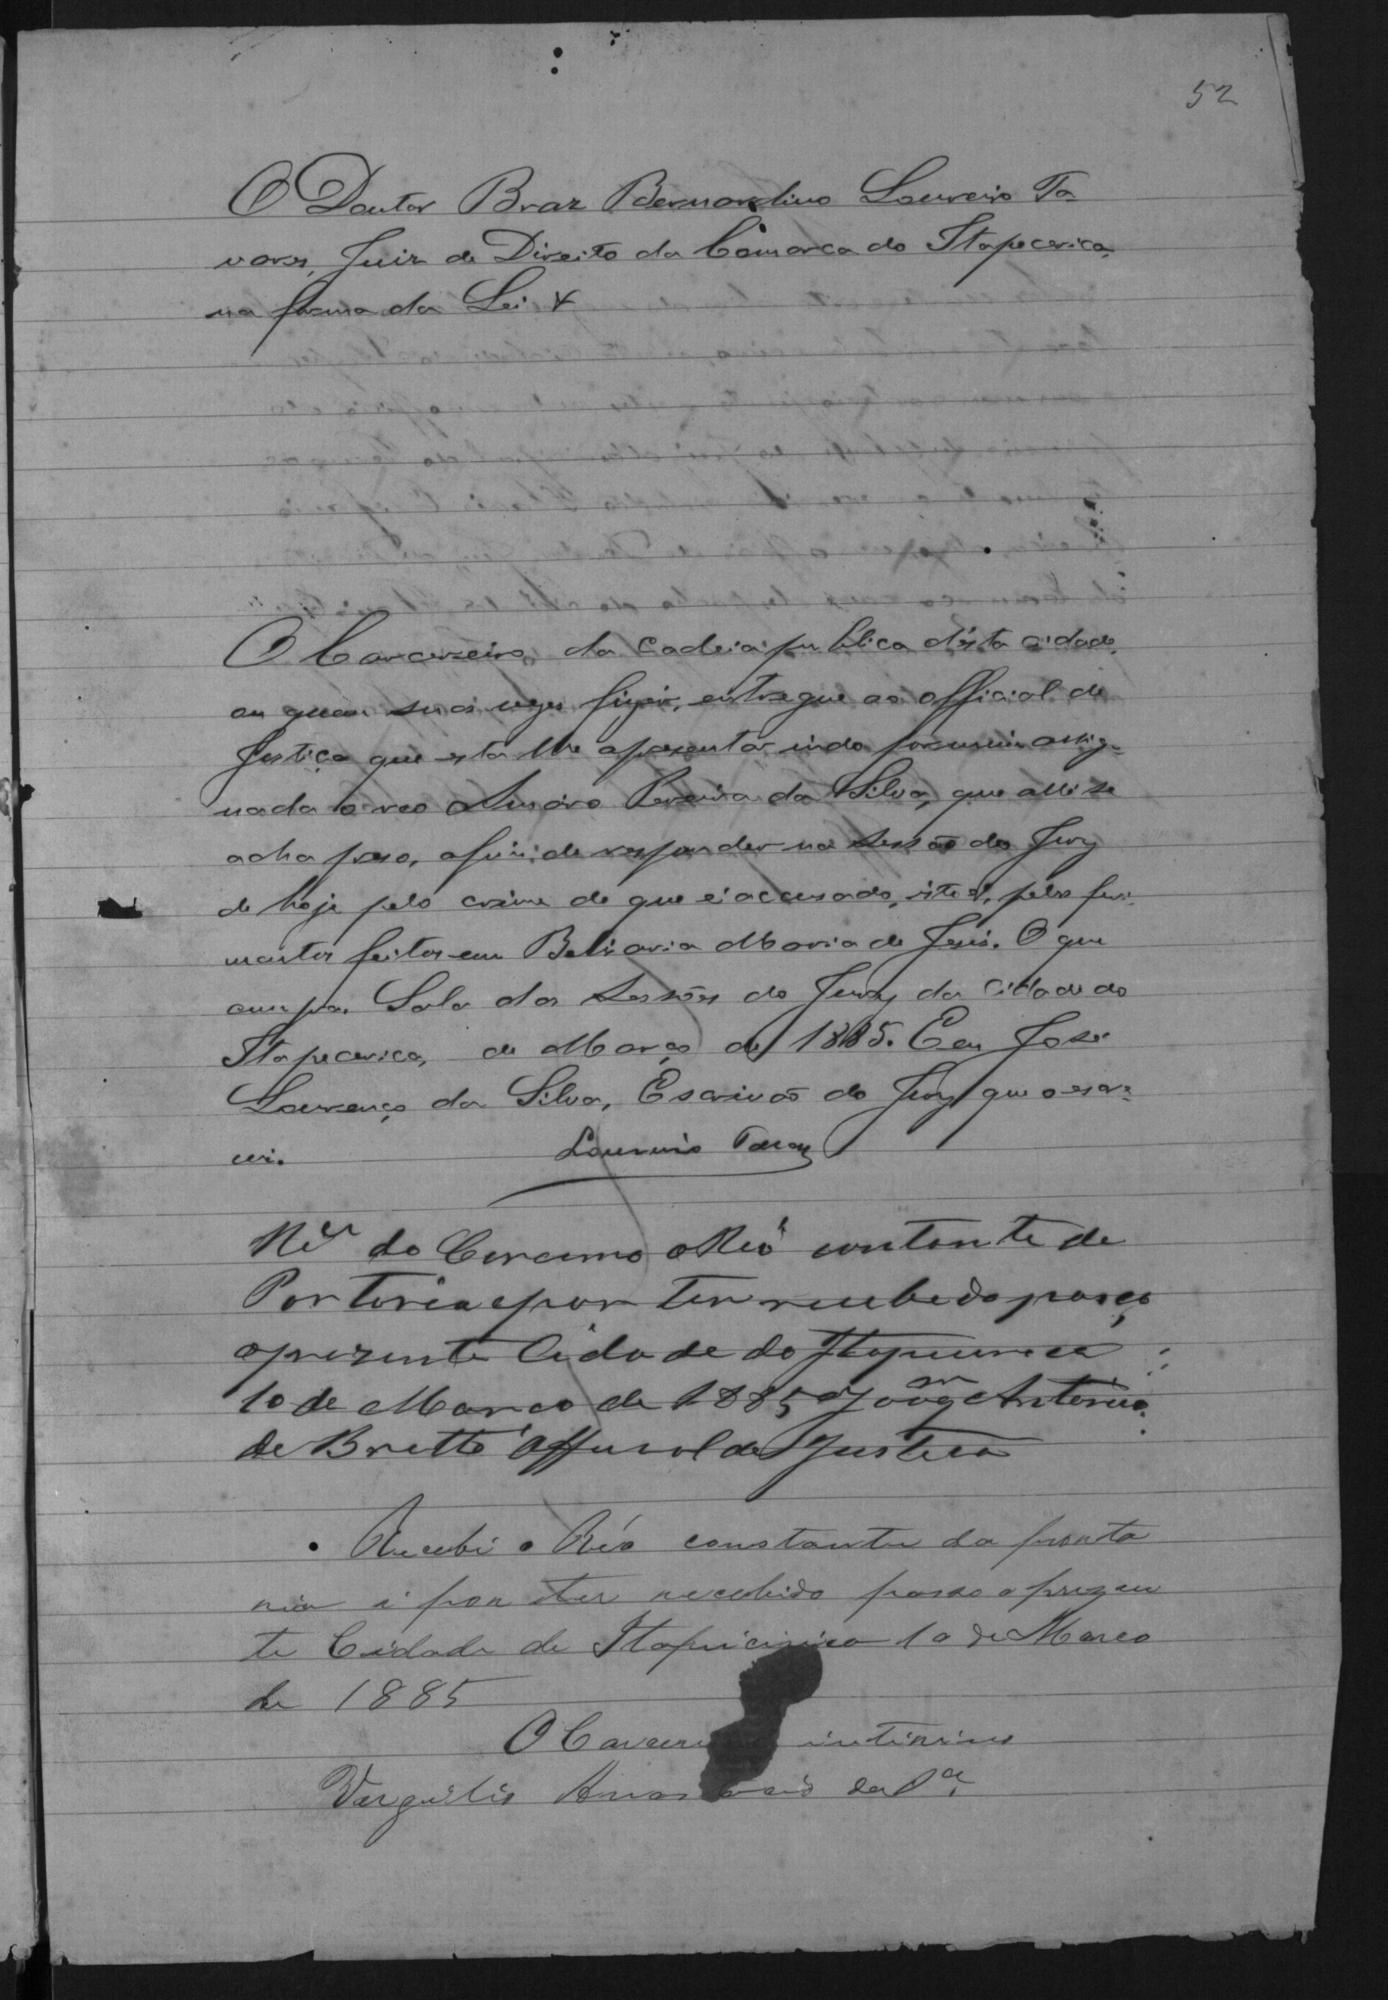 52
O Doutor Braz Bernardino Loureiro Ta
vares, Juiz de Direito da Comarca do Itapecerica,
na forma da Lei &
O Carcereiro, da cadeia publica désta cidade,
ou quem suas vezes fizer, entregue ao official de
Justiça que esta lhe apresentar indo por mim assig-
nada o reo Amaro Pereira da Silva, que alli se
acha preso, afim de responder na sessão do Jury
de hoje pelo crime de que é accusado, isto é, pelos feri-
mentos feitos em Maria de Jesus. O que
cumpra. Sala das Sessões do Jury da Cidade do
Itapecerica, de Março de 1885. Eu José
Lourenço da Silva, Escrivão do Jury que o escre-
vi. Loureiro Tavares
do o Reo constante de
Portoria e por ter recebedo paço
aprezente Cidade do Itapecerica
10 de Março de 1885 Antonio
de Britto Official de Justica
Recebi o Réo constante da porta
ria i por ter recebido passo aprezen
te Cidade de Itapicirica 10 de Marco
de 1885
O Carcereiro interino
Vergilio da Sª